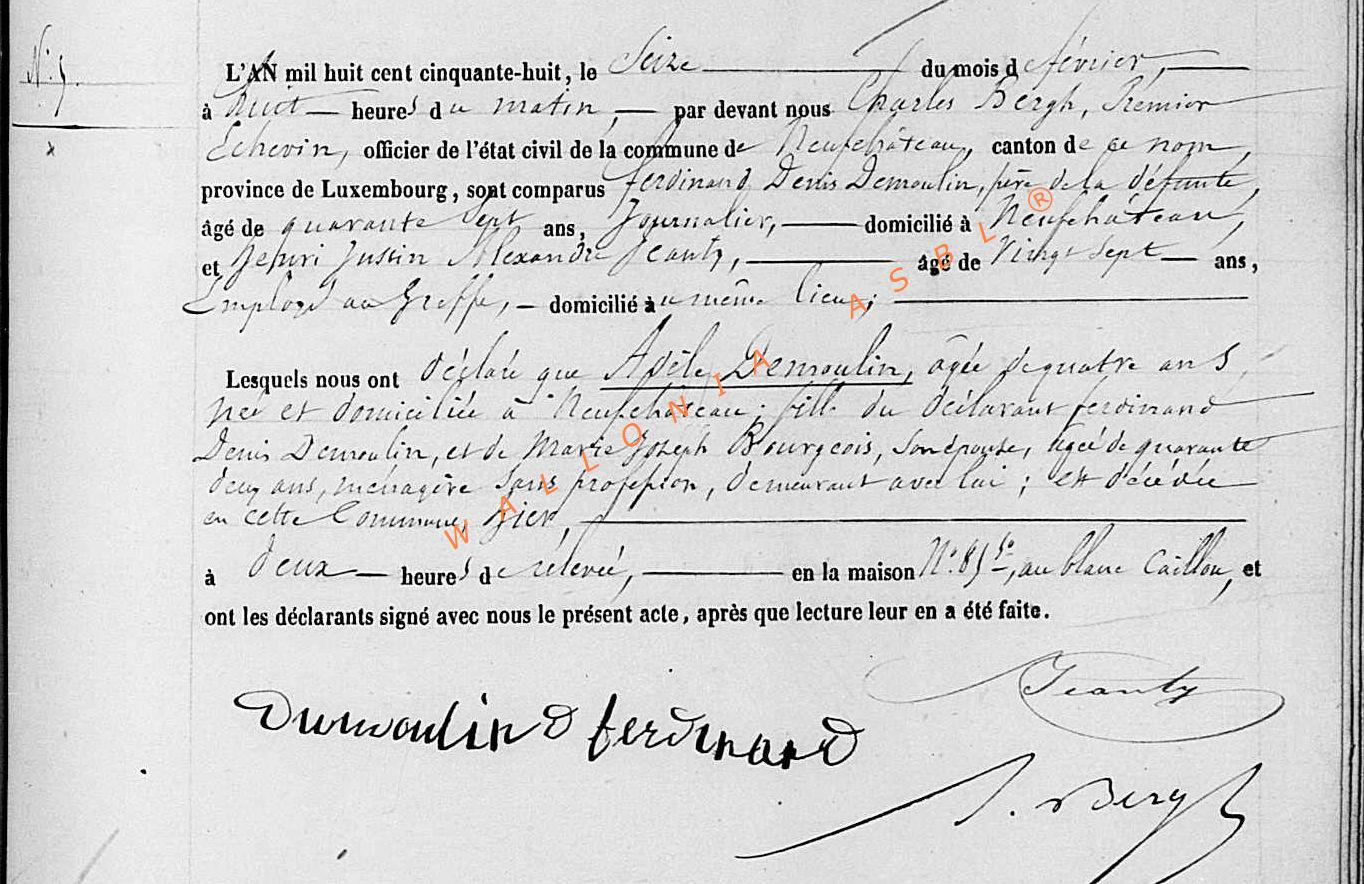 N° 9.
L'AN mil huit cent cinquante-huit, le Seize du mois de février,
à huit heures du matin, par devant nous Charles Bergh, Premier
Echevin, officier de l'état civil de la commune de Neufchâteau, canton de ce nom,
province de Luxembourg, sont comparus ferdinand Denis Demoulin, père de la défunte,
âgé de quarante Sept ans, Journalier, domicilié à Neufchâteau,
et henri Justin Alexandre Jeanty, âgé de Vingt Sept ans,
Employé au Greffe, domicilié au même lieu;
Lesquels nous ont déclaré que Adèle Demoulin, âgée de quatre ans,
née et domiciliée à Neufchâteau; fille du déclarant ferdinand
Denis Demoulin, et de Marie Joseph Bourgeois, son épouse, âgée de quarante
deux ans, ménagère Sans profession, demeurant avec lui; est décédée
en cette Commune, hier,
à deux heures de relevée, en la maison N° au blanc Caillou, et
ont les déclarants signé avec nous le présent acte, après que lecture leur en a été faite.
Jeanty
Dumoulin D ferdinand
Bergh
WALLONIA ASBL ®